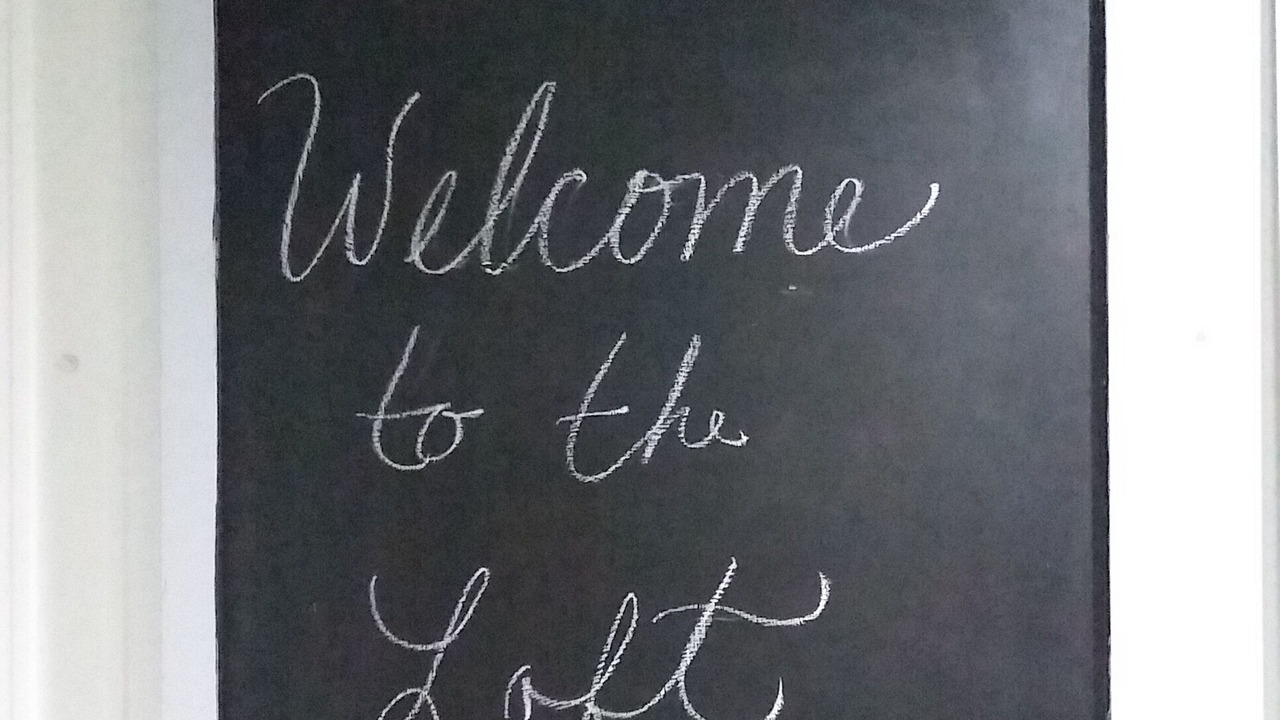 Welcome
to the
Loft